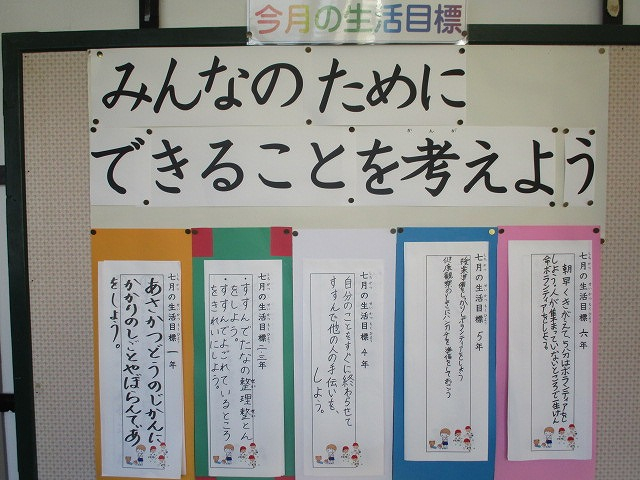 今月の生活目標
みんなのために
できることを考えよう
かんが
七月の生活目標 一年
あさかつどうのじかんに
かかりのしごとやぼらんてぃあ
をしよう。
七月の生活目標 二・三年
・すすんでたなの整理整とん
をしよう。
・すすんでよごれているところ
をきれいにしよう。
七月の生活目標 4年
自分のことをすぐに終わらせて
すすんで他の人の手伝いを、
しよう。
七月の生活目標 5年
七月の生活目標 六年
朝早くきがえて、5分はボランティアを
しよう。人が集まっていないところで一生けん
命ボランティアをしよう。